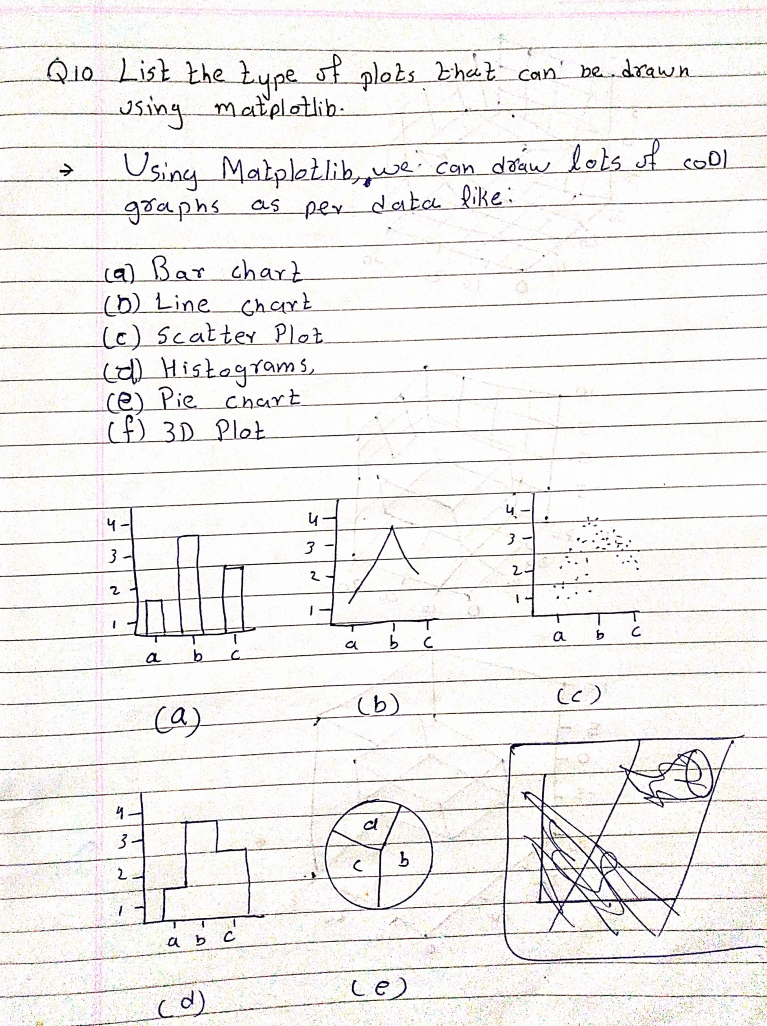 Q10 List the type of plots that can be drawn
using matplotlib.
→ Using Matplotlib, we can draw lots of cool
graphs as per data like:
(a) Bar chart
(b) Line chart
(c) Scatter Plot
(d) Histograms,
(e) Pie chart
(f) 3D Plot
4
3
2
1
a b c
(a)
4
3
2
1
a b c
(b)
4
3
2
1
a b c
(c)
4
3
2
1
a b c
(d)
a
c b
(e)